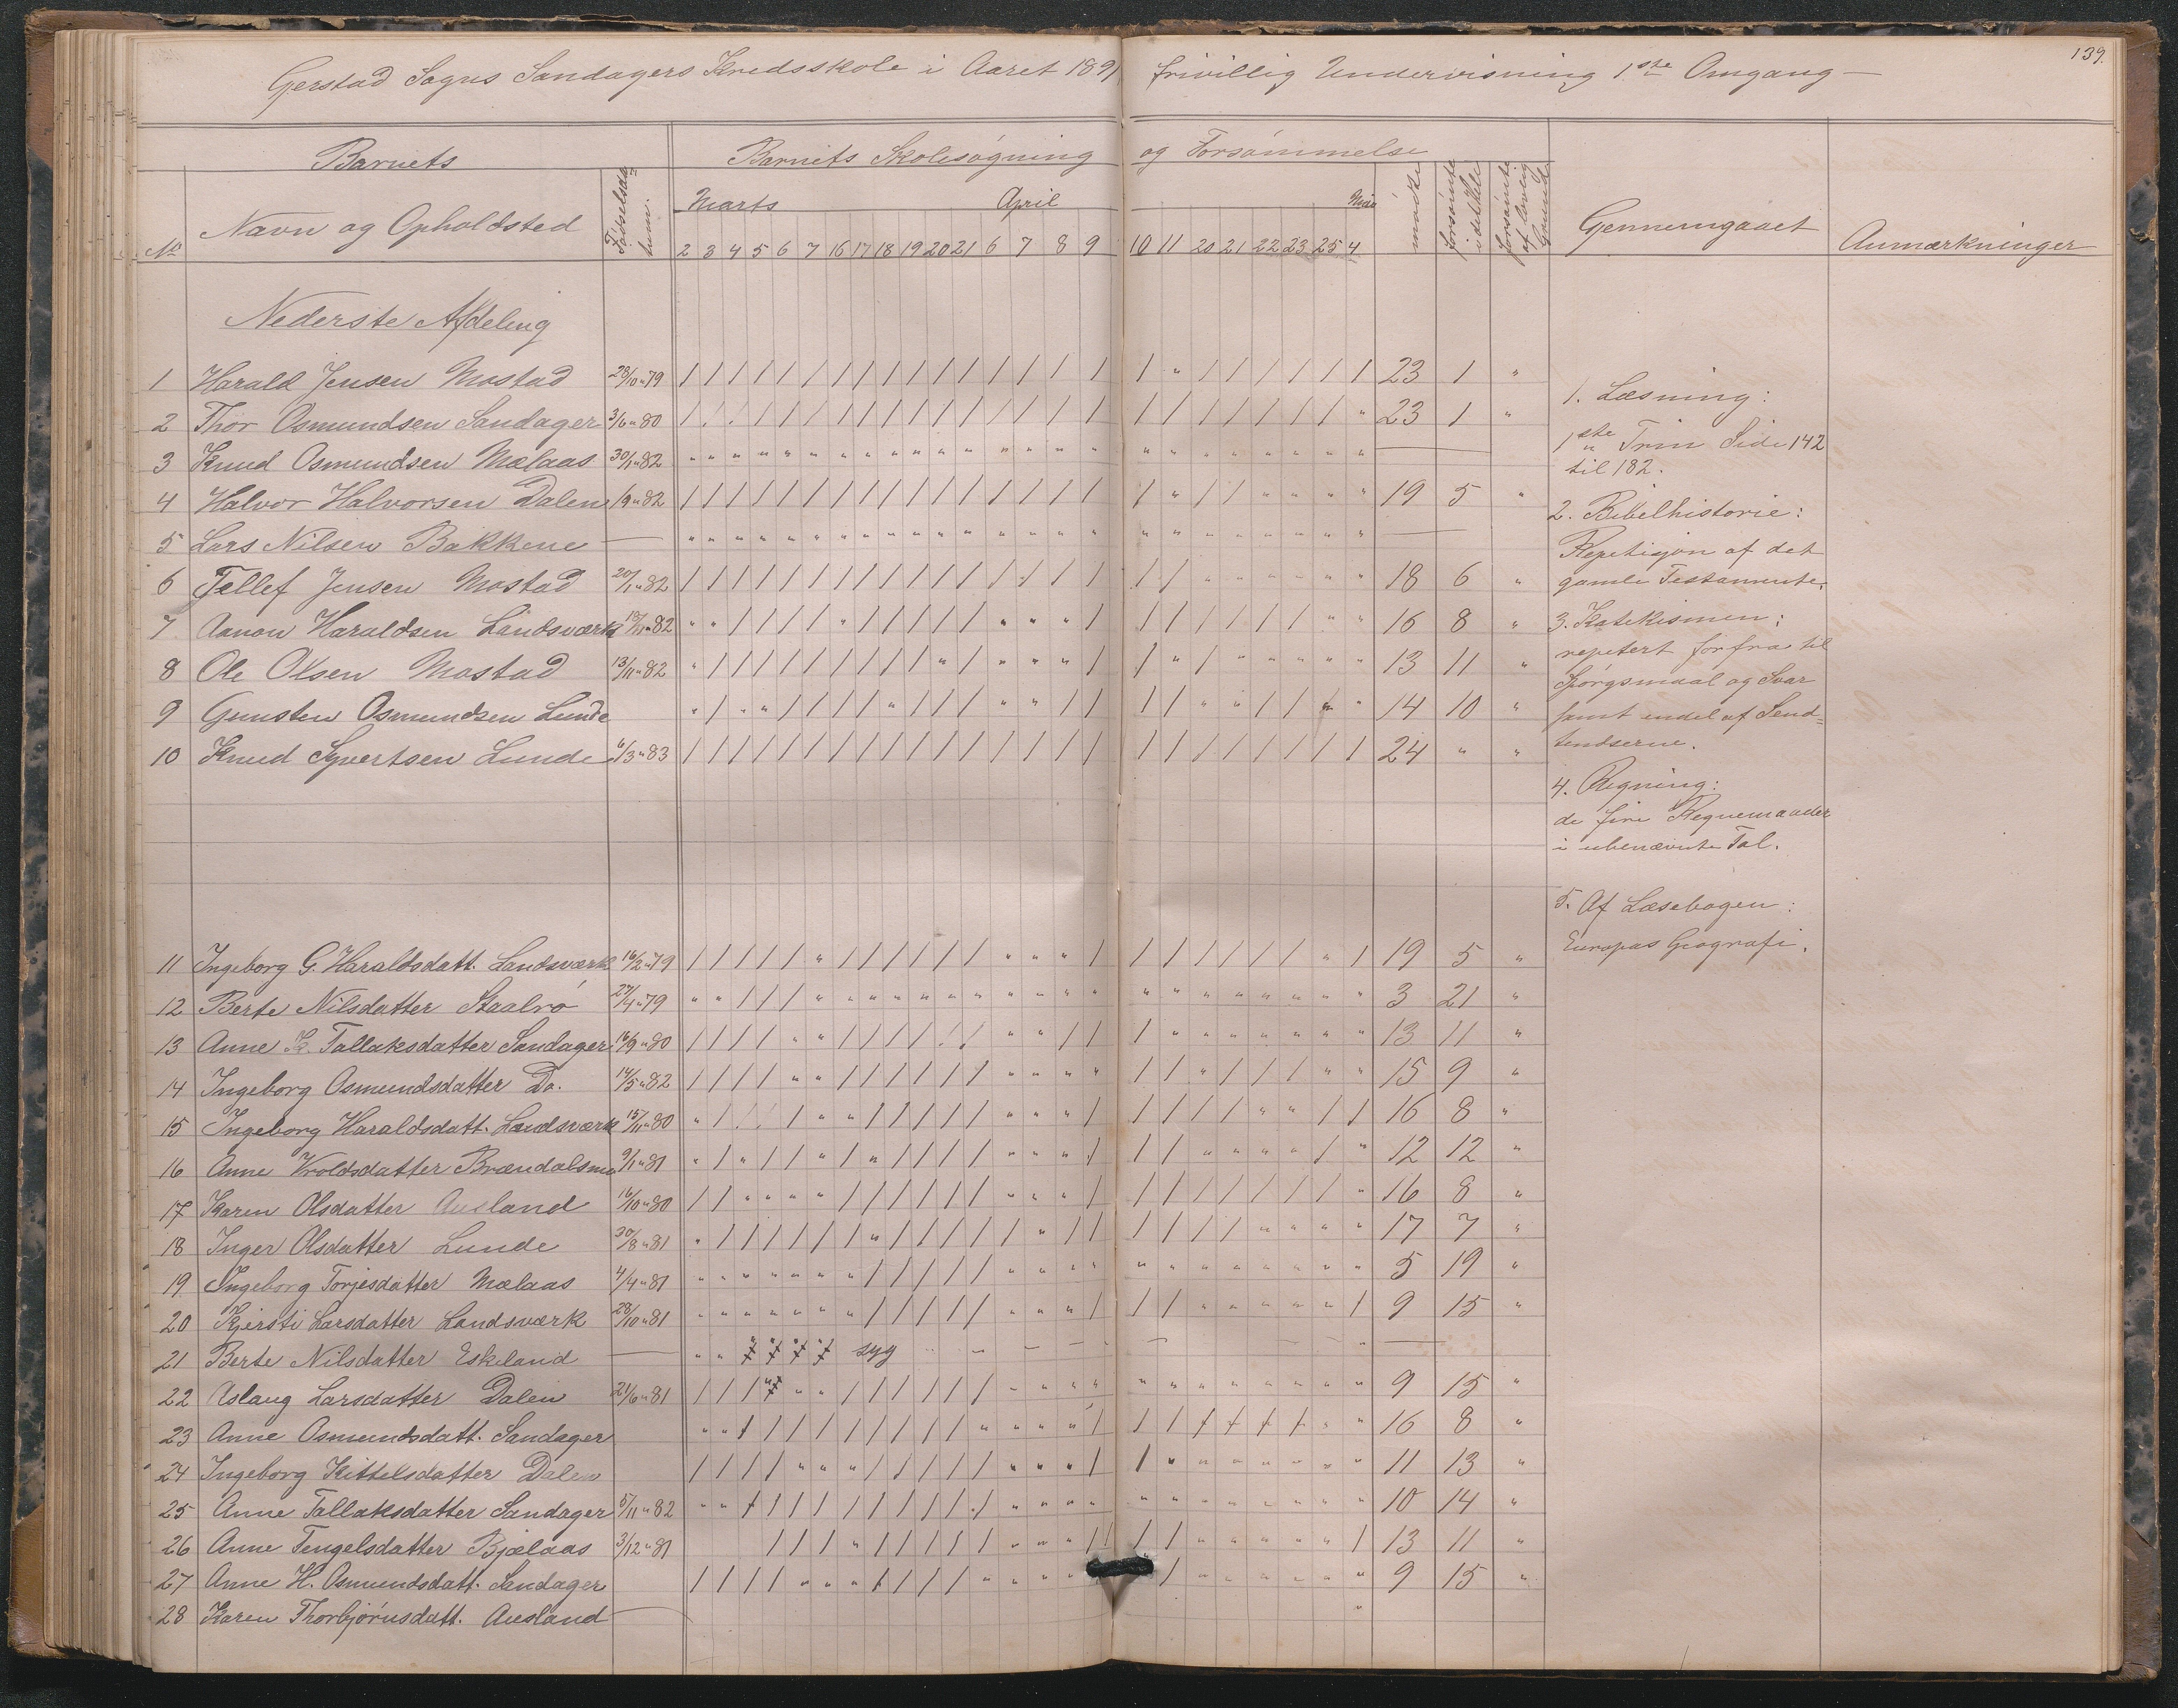 139.
Gerstad Sogns Sandagers Kredsskole i Aaret 1891 frivillig Undervisning 1.ste Omgang —
Barnets Barnets Skolesøgning og Forsømmelse
No Navn og Opholdsted Fødselsdatum. Marts April Mai mødte forsømte i det Hele forsømte af lovlig Grund Gennemgaaet Anmærkninger
2 3 4 5 6 7 16 17 18 19 20 21 6 7 8 9 10 11 20 21 22 23 25 4
Nederste Afdeling
1 Harald Jensen Mostad 28/10 "79 / / / / / / / / / / / / / / / / / " / / / / / / 23 1 "
2 Thor Osmundsen Sandager 3/6 "80 / / / / / / / / / / / / / / / / / / / / / / / " 23 1 "
3 Knud Osmundsen Mælaas 30/1 "82 " " " " " " " " " " " " " " " " " " " " " " " " —
4 Halvor Halvorsen Dalen 1/9 "82 / / / / / / / / / / / / / / / / / " / / " " " " 19 5 "
5 Lars Nilsen Bakkene — " " " " " " " " " " " " " " " " " " " " " " " " —
6 Tellef Jensen Mostad 20/1 "82 / / / / / / / / / / / / / / / / / / " " " " " " 18 6 "
7 Aanon Haraldsen Landsværk "82 " " / / / / " / / / / / " " " / / / / / / / " " 16 8 "
8 Ole Olsen Mostad 13/11 "82 " / / / / / / / / / " / " " " / / " / " " " " " 13 11 "
9 Gunsten Osmundsen Lunde " / " " / / / / " / / / " " / / / / " " / / " " 14 10 "
10 Knud Syvertsen Lunde 6/3 "83 / / / / / / / / / / / / / / / / / / / / / / / / 24 " "
11 Ingeborg G. Haraldsdatt. Landsværk 16/2 "79 / / / / / " / / / / / / " " " / / / / / / / " / 19 5 "
12 Berte Nilsdatter Staalrø 27/4 "79 " " / / / " " " " " " " " " " " " " " " " " " " 3 21 "
13 Anne K. Tallaksdatter Sandager 16/9 "80 / / / / " " / / / / / / " " / / / " " " " " " " 13 11 "
14 Ingeborg Osmundsdatter Do. 14/5 "82 / / / / " " / / / / / / " " " " / / " / / / " " 15 9 "
15 Ingeborg Haraldsdatt. Landsværk 15/11 "80 " / / / / " " / / / / / " " " / / / / / " " / / 16 8 "
16 Anne Vroldsdatter Brændalsmo 9/1 "81 " / " / / " / " / / / / " " " / / / " " " " / " 12 12 "
17 Karen Olsdatter Ausland 16/10 "80 / / " " " " / / / / / / " " " / / / / / / / / " 16 8 "
18 Inger Olsdatter Lunde 30/8 "81 " / / / / / / " / / / / / " / / / / / / " " " " 17 7 "
19 Ingeborg Torjesdatter Mælaas 4/4 "81 " " " " " " " / / / / / " " " " " " " " " " " " 5 19 "
20 Kjersti Larsdatter Landsværk 28/10 "81 " " " " " " " / / / / / " " " / / / " " " " " / 9 15 "
21 Berte Nilsdatter Eskeland — " " syg —
22 Aslaug Larsdatter Dalen 21/6 "81 / / / " " " / / / / / / " " " " " " " " " " " " 9 15 "
23 Anne Osmundsdatt. Sandager " " / / / / / / / / / " " " " / / / / / / / " " 16 8 "
24 Ingeborg Kittelsdatter Dalen / / / / " " " / / / / / " " " / / " " " " " " " 11 13 "
25 Anne Tallaksdatter Sandager 5/11 "82 " " / / / / / / / / / / " " " " " " " " " " " " 10 14 "
26 Anne Tengelsdatter Bjælaas 3/12 "81 / / / " / / / / / " " " / / / / " " " " " / 13 11 "
27 Anne H. Osmundsdatt. Sandager / / / / " " " / / / / " " " " / " " " " " " 9 15 "
28 Karen Thorbjørnsdatt. Ausland — "
1. Læsning:
1ste Trin Side 142
til 182.
2. Bibelhistorie:
Repetisjon af det
gamle Testamente.
3. Katekismen:
repetert forfra til
Spørgsmaal og Svar
samt endel af Send=
tendserne.
4. Regning:
de fire Regnemaader
i ubenævnte Tal.
5. Af Læsebogen:
Europas Geografi.